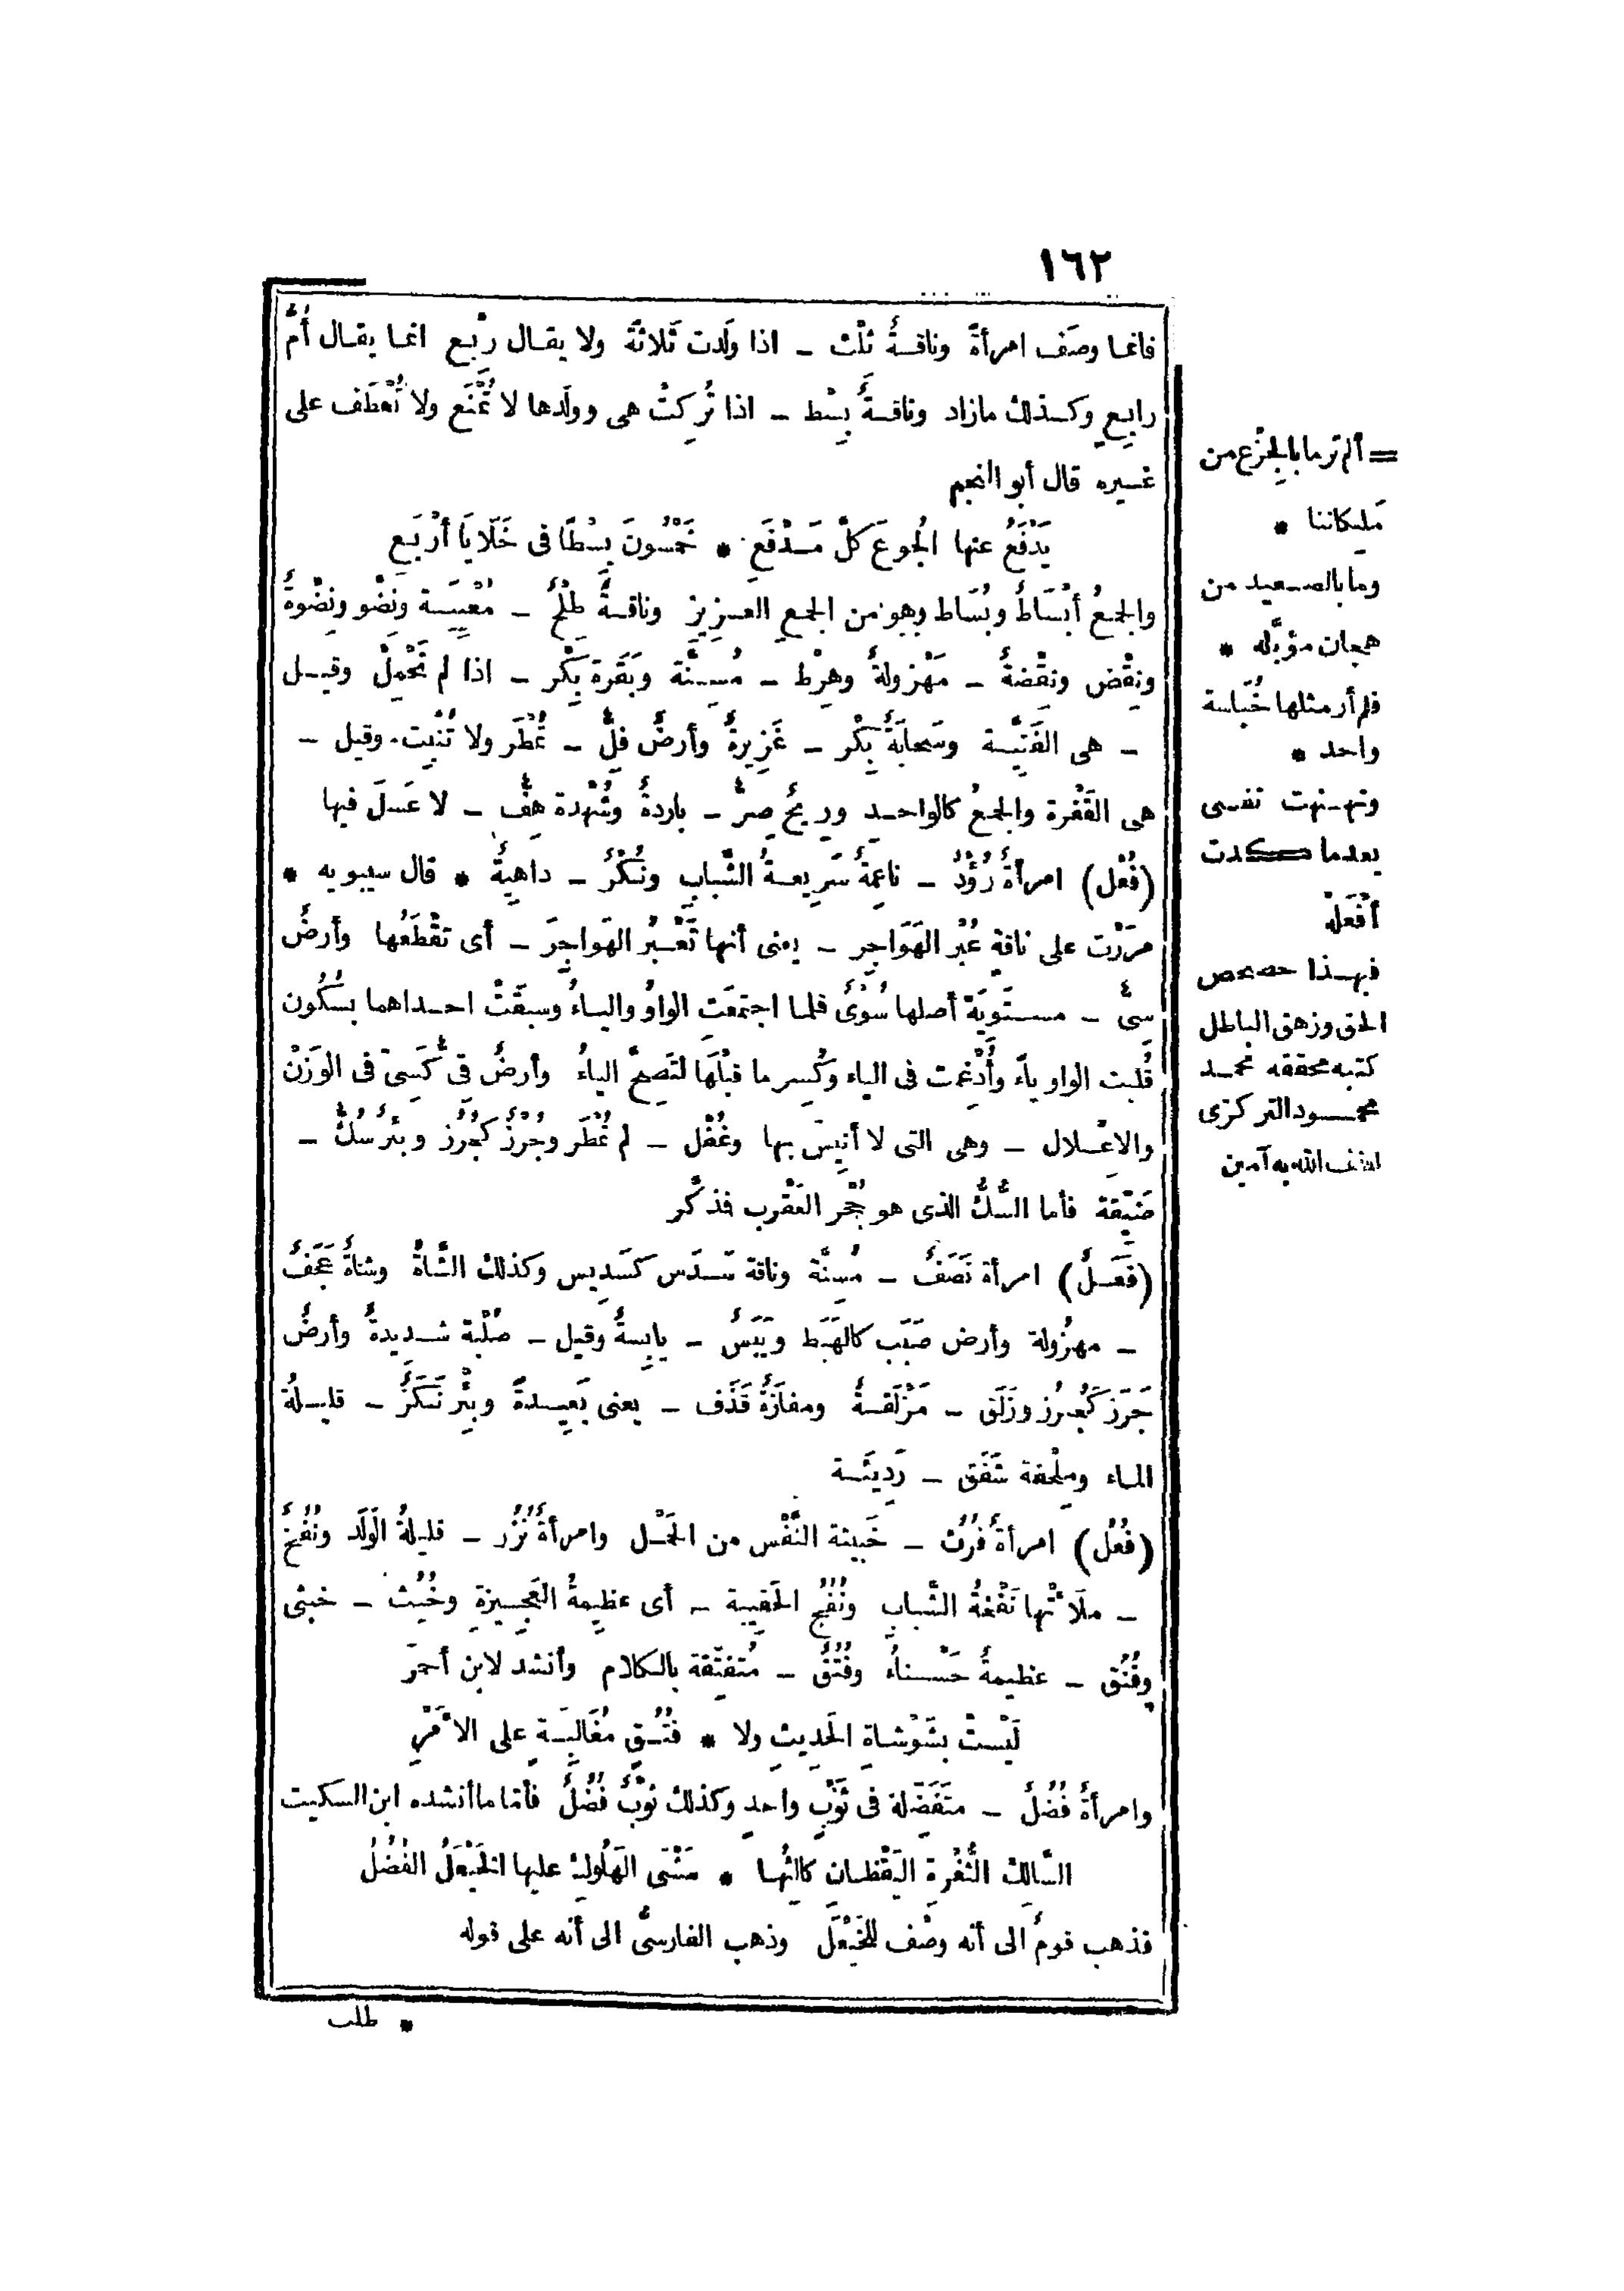 ١٦٢
فانما وصَف امرأةً وناقــةٌ ثِلْث – اذا ولَدت ثَلاثةً ولا يقـال رِبْع انما يقـال أُمُّ
رابِعٍ وكـذلك مازاد وناقــةٌ بِسْط – اذا تُرِكتْ هى وولَدها لا تُمْنَع ولا تُعْطَف على
غـيره قال أبو النجم
يَدْفَعُ عنها الجُوعَ كلَّ مَـدْفَعِ * خَمْسُونَ بِسْطًا فى خَلَايَا أرْبَعِ
والجمعُ أبْسَاطٌ وبُسَاط وهو من الجمع العـزِيزِ وناقــةٌ طِلْحٌ – مُعْيِيَـة ونِضْو ونِضْوةٌ
ونِقْض ونِقْضةٌ – مَهْزولةٌ وهِرْط – مُسِـنَّة وبَقَرة بِكْر – اذا لم تَحْمِلْ وقيـل
– هى الفَتِيَّـة وسَحابَةٌ بِكْر – غَزِيرةٌ وأرضٌ فِلٌّ – تُمْطَر ولا تُنْبِت. وقيل –
هى القَفْرة والجمعُ كالواحـد ورِيحٌ صِرٌّ – باردةٌ وشُهْدة هِفٌّ – لا عَسلَ فيها
(فُعْل) امرأةٌ رُؤْدٌ – ناعِمةٌ سَرِيعــةُ الشَّبابِ ونُكْرٌ – داهِيةٌ * قال سيبويه *
مرَرْت على ناقةٍ عُبْرِ الهَوَاجِرِ – يعنى أنها تَعْـبُرُ الهَواجِرَ – أى تَقْطَعُها وأرضٌ
سِىٌّ – مسـتَوِيَة أصلها سُوْىٌ فلمـا اجتمعَتِ الواوُ واليـاءُ وسبقَتْ احـداهما بسُكُون
قُلبت الواو ياءً وأُدْغِمت فى الياء وكُسِر ما قبْلَها لتَصِحَّ الياءُ وأرضٌ قىٌّ كَسىّ فى الوَزْن
والاعْـلال – وهى التى لا أنِيسَ بها وغُفْل – لم تُمْطَر وجُرْزٌ كَجُرُز وبئر سُكٌّ –
ضَيِّقة فأما السُّكُّ الذى هو جُحْر العَقْرب فذكَّر
(فَعَـلٌ) امرأة نَصَفٌ – مُسِنَّة وناقة سَـدَس كَسَدِيس وكذلك الشَّاةُ وشاةٌ عَجَفٌ
– مهزُولة وأرض صَبَب كالهَبَط ويَبَسٌ – يابِسةٌ وقيل – صُلْبة شـديدةٌ وأرضٌ
جَرَز كَجُرُز وزَلَق – مَزْلَقــةٌ ومفازَةٌ قَذَف – يعنى بَعِيـدةً وبِئْر نَكَزٌ – قليـلةُ
المـاء ومِلْحفة شَفَق – رَدِيئـة
(فُعُل) امرأةٌ فُرُث – خَبِيثة النَّفْس من الحَمْـل وامرأةٌ نُزُر – قليلةُ الوَلَد ونُفُخٌ
– مَلَأتْها نَفْخةُ الشَّبابِ ونُفُج الحَقِيبة – أى عظِيمةُ العَجِـيزةِ وخُبُث – خبثى
وفُنُق – عظيمةٌ حَسْـناءُ وفُتُقٌ – مُتفتِّقة بالـكلام وأنشد لابن أحمرَ
لَيْسَتْ بشَوْشاةِ الحَدِيثِ ولا * فُتُـقٍ مُغَالِبَـةٍ على الأمْرِ
وامرأةٌ فُضُلٌ – متَفَضِّلة فى ثَوْبٍ واحدٍ وكذلك ثوبٌ فُضُلٌ فأمّا ما أنشده ابن السكيت
السَّالِكُ الثُّغْرةِ اليَقْظـان كالِئُهـا * مَشْىَ الهَلُوكِ عليها الخَيْعَلُ الفُضُلُ
فذهب قومٌ الى أنه وصْف للخَيْعَل وذهب الفارسىُّ الى أنه على قوله
* طلب
= ألم تر ما بالجِزْع من
مَلِـكاننا *
وما بالصـعيد من
هجان مؤبَّله *
فلم أر مثلها خُبَاسة
واحد *
ونهـنهت نفـسى
بعدما كدت
أفْعَلَهْ
فبهـذا حصحص
الحق وزهق الباطل
كتبه محققه محمـد
محمـود التركزى
لطف الله به آمين